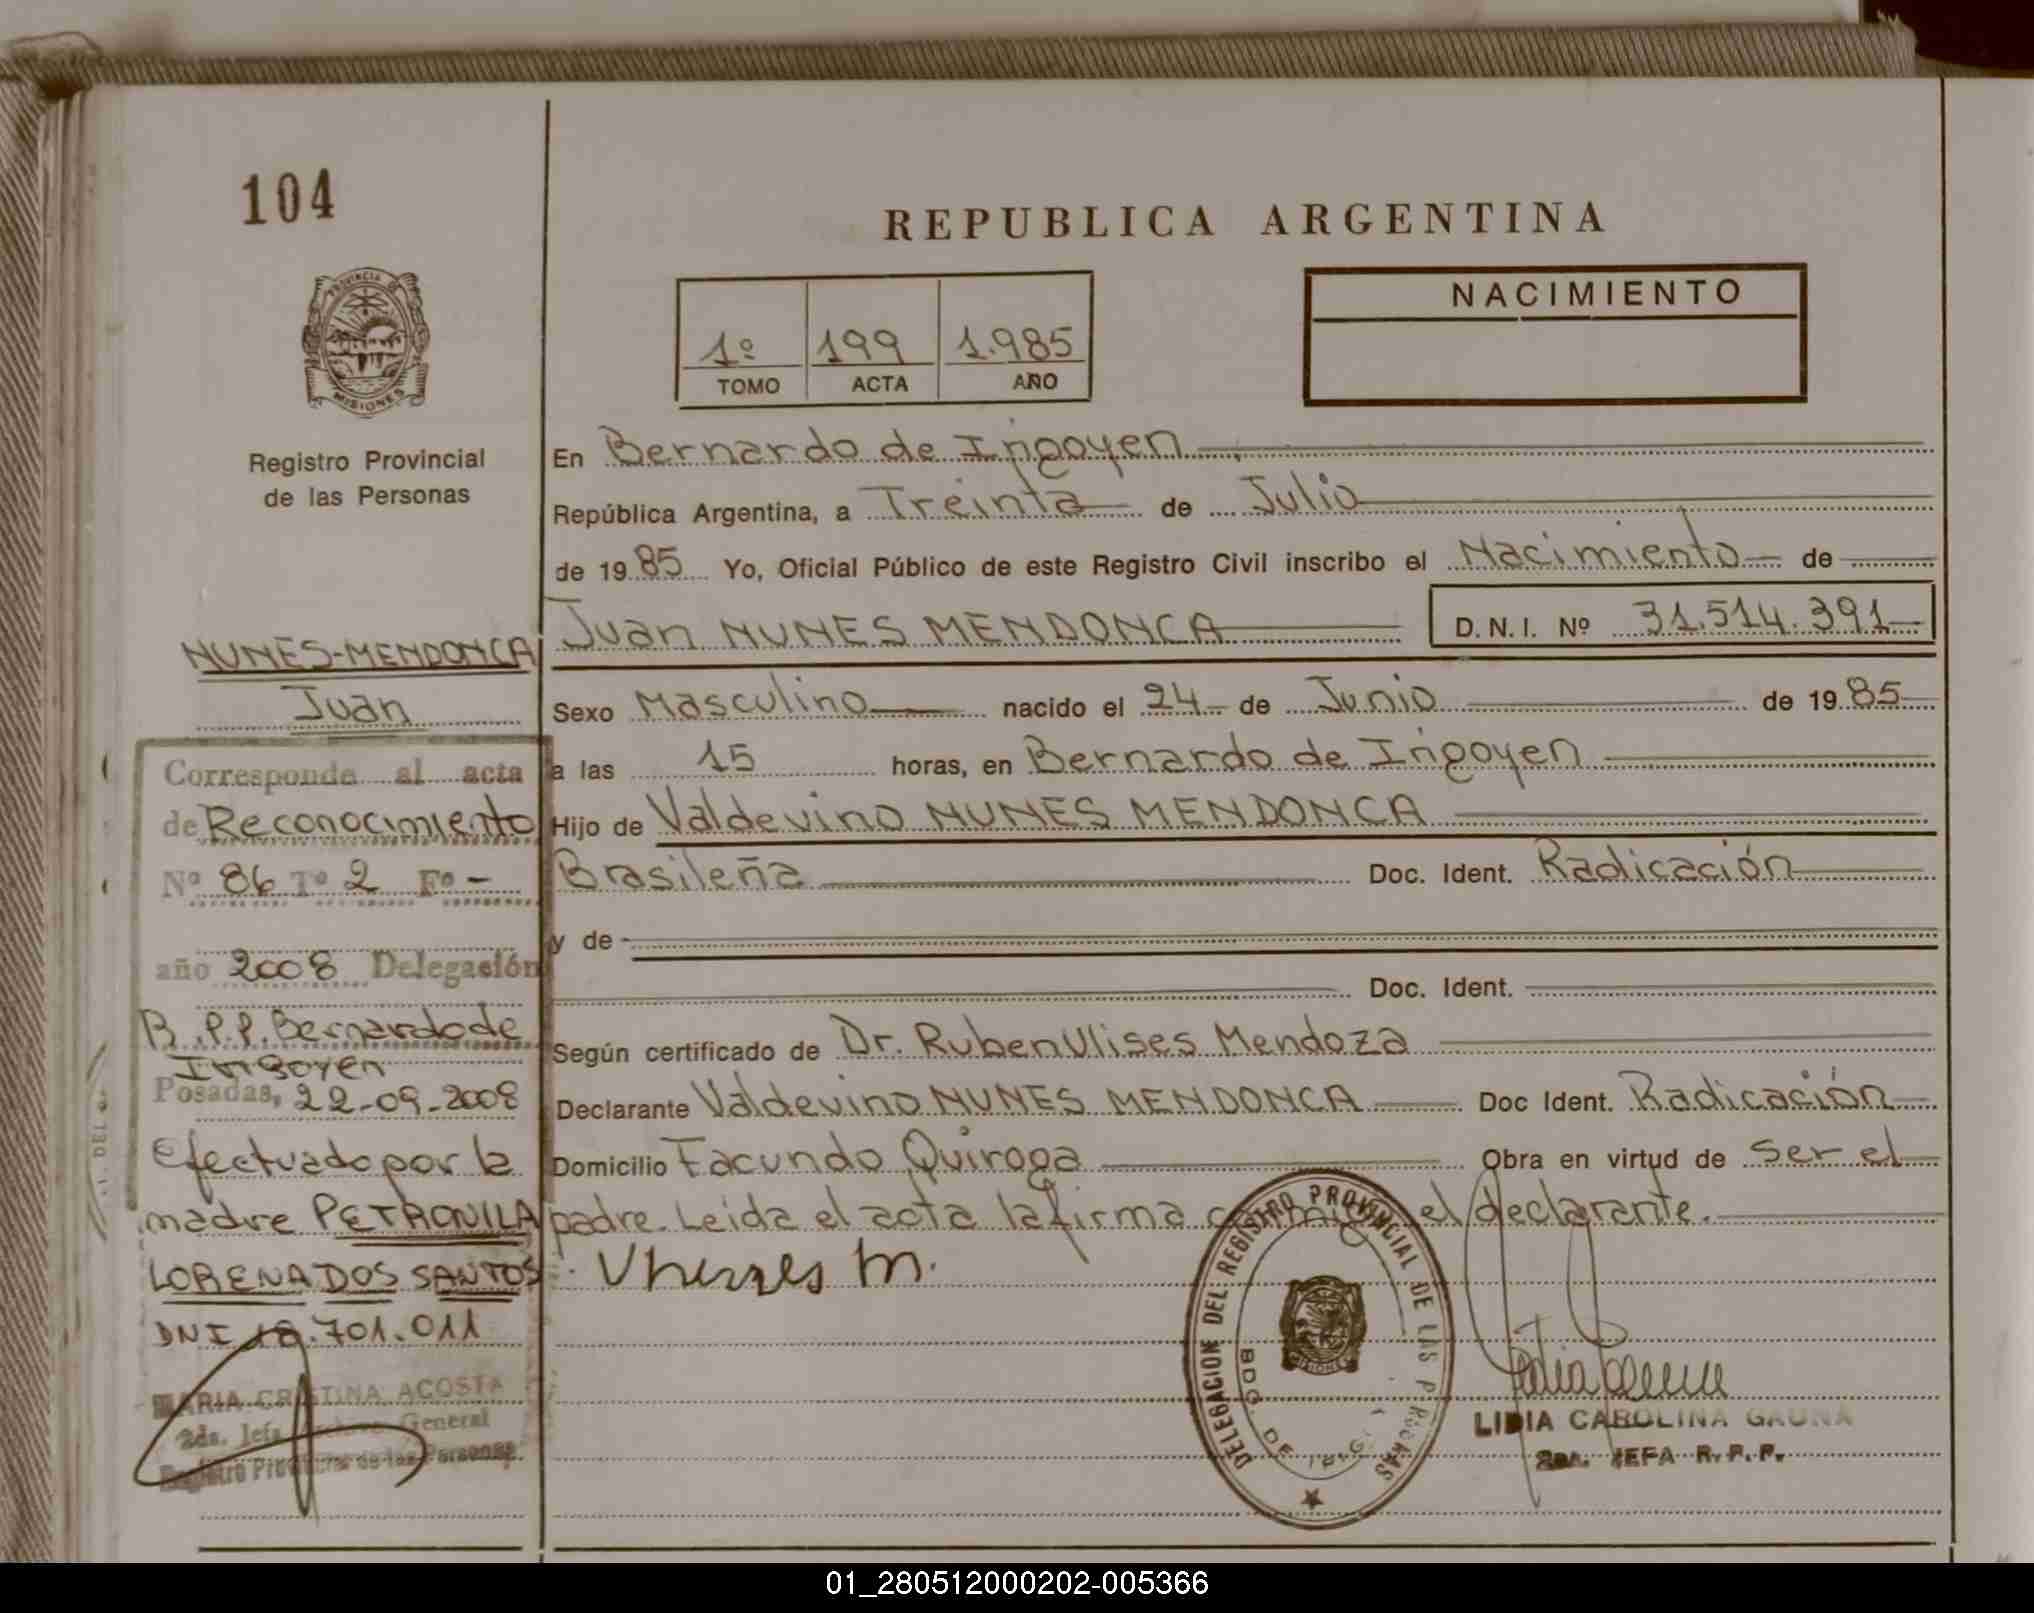 104
PROVINCIA DE
MISIONES
Registro Provincial
de las Personas
NUNES-MENDONCA
Juan
Corresponde al acta
de Reconocimiento
Nº 86 Tº 2 Fº -
año 2008 Delegación
R.P.P. Bernardo de
Irigoyen
Posadas, 22-09-2008
efectuado por la
madre PETRONILA
LORENA DOS SANTOS
DNI 18.701.011
MARIA CRISTINA ACOSTA
2da. Jefa General
Registro Provincial de las Personas
REPUBLICA ARGENTINA
1º 199 1.985
TOMO ACTA AÑO
NACIMIENTO
En Bernardo de Irigoyen
República Argentina, a Treinta de Julio
de 1985 Yo, Oficial Público de este Registro Civil inscribo el Nacimiento de
Juan NUNES MENDONCA D.N.I. Nº 31.514.391
Sexo Masculino nacido el 24 de Junio de 1985
a las 15 horas, en Bernardo de Irigoyen
Hijo de Valdevino NUNES MENDONCA
Brasileña Doc. Ident. Radicación
y de
Doc. Ident.
Según certificado de Dr. Ruben Ulises Mendoza
Declarante Valdevino NUNES MENDONCA Doc Ident. Radicación
Domicilio Facundo Quiroga Obra en virtud de ser el
padre. Leída el acta la firma conmigo el declarante.
DELEGACION DEL REGISTRO PROVINCIAL DE LAS PERSONAS
BDO. DE IRIGOYEN
MISIONES
LIDIA CAROLINA GAUNA
2da. JEFA R.P.P.
01_280512000202-005366